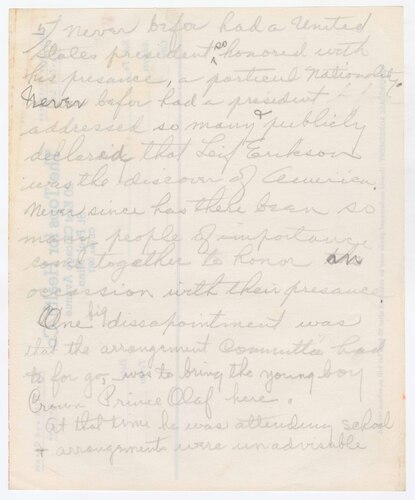 5/ Never befor had a United
States president so honored with
his presance, a particul Nationality.
Never befor had a president
addressed so many & publicly
declared that Leif Erikson
was the discover of America.
Never since has there been so
many people of importance
come together to honor an
occassion with their presance
One big dissapointment was
that the arrangement Committee had
to for go, was to bring the young boy
Crown Prince Olaf here.
At that time he was attending school
& arrangements were unadvisable